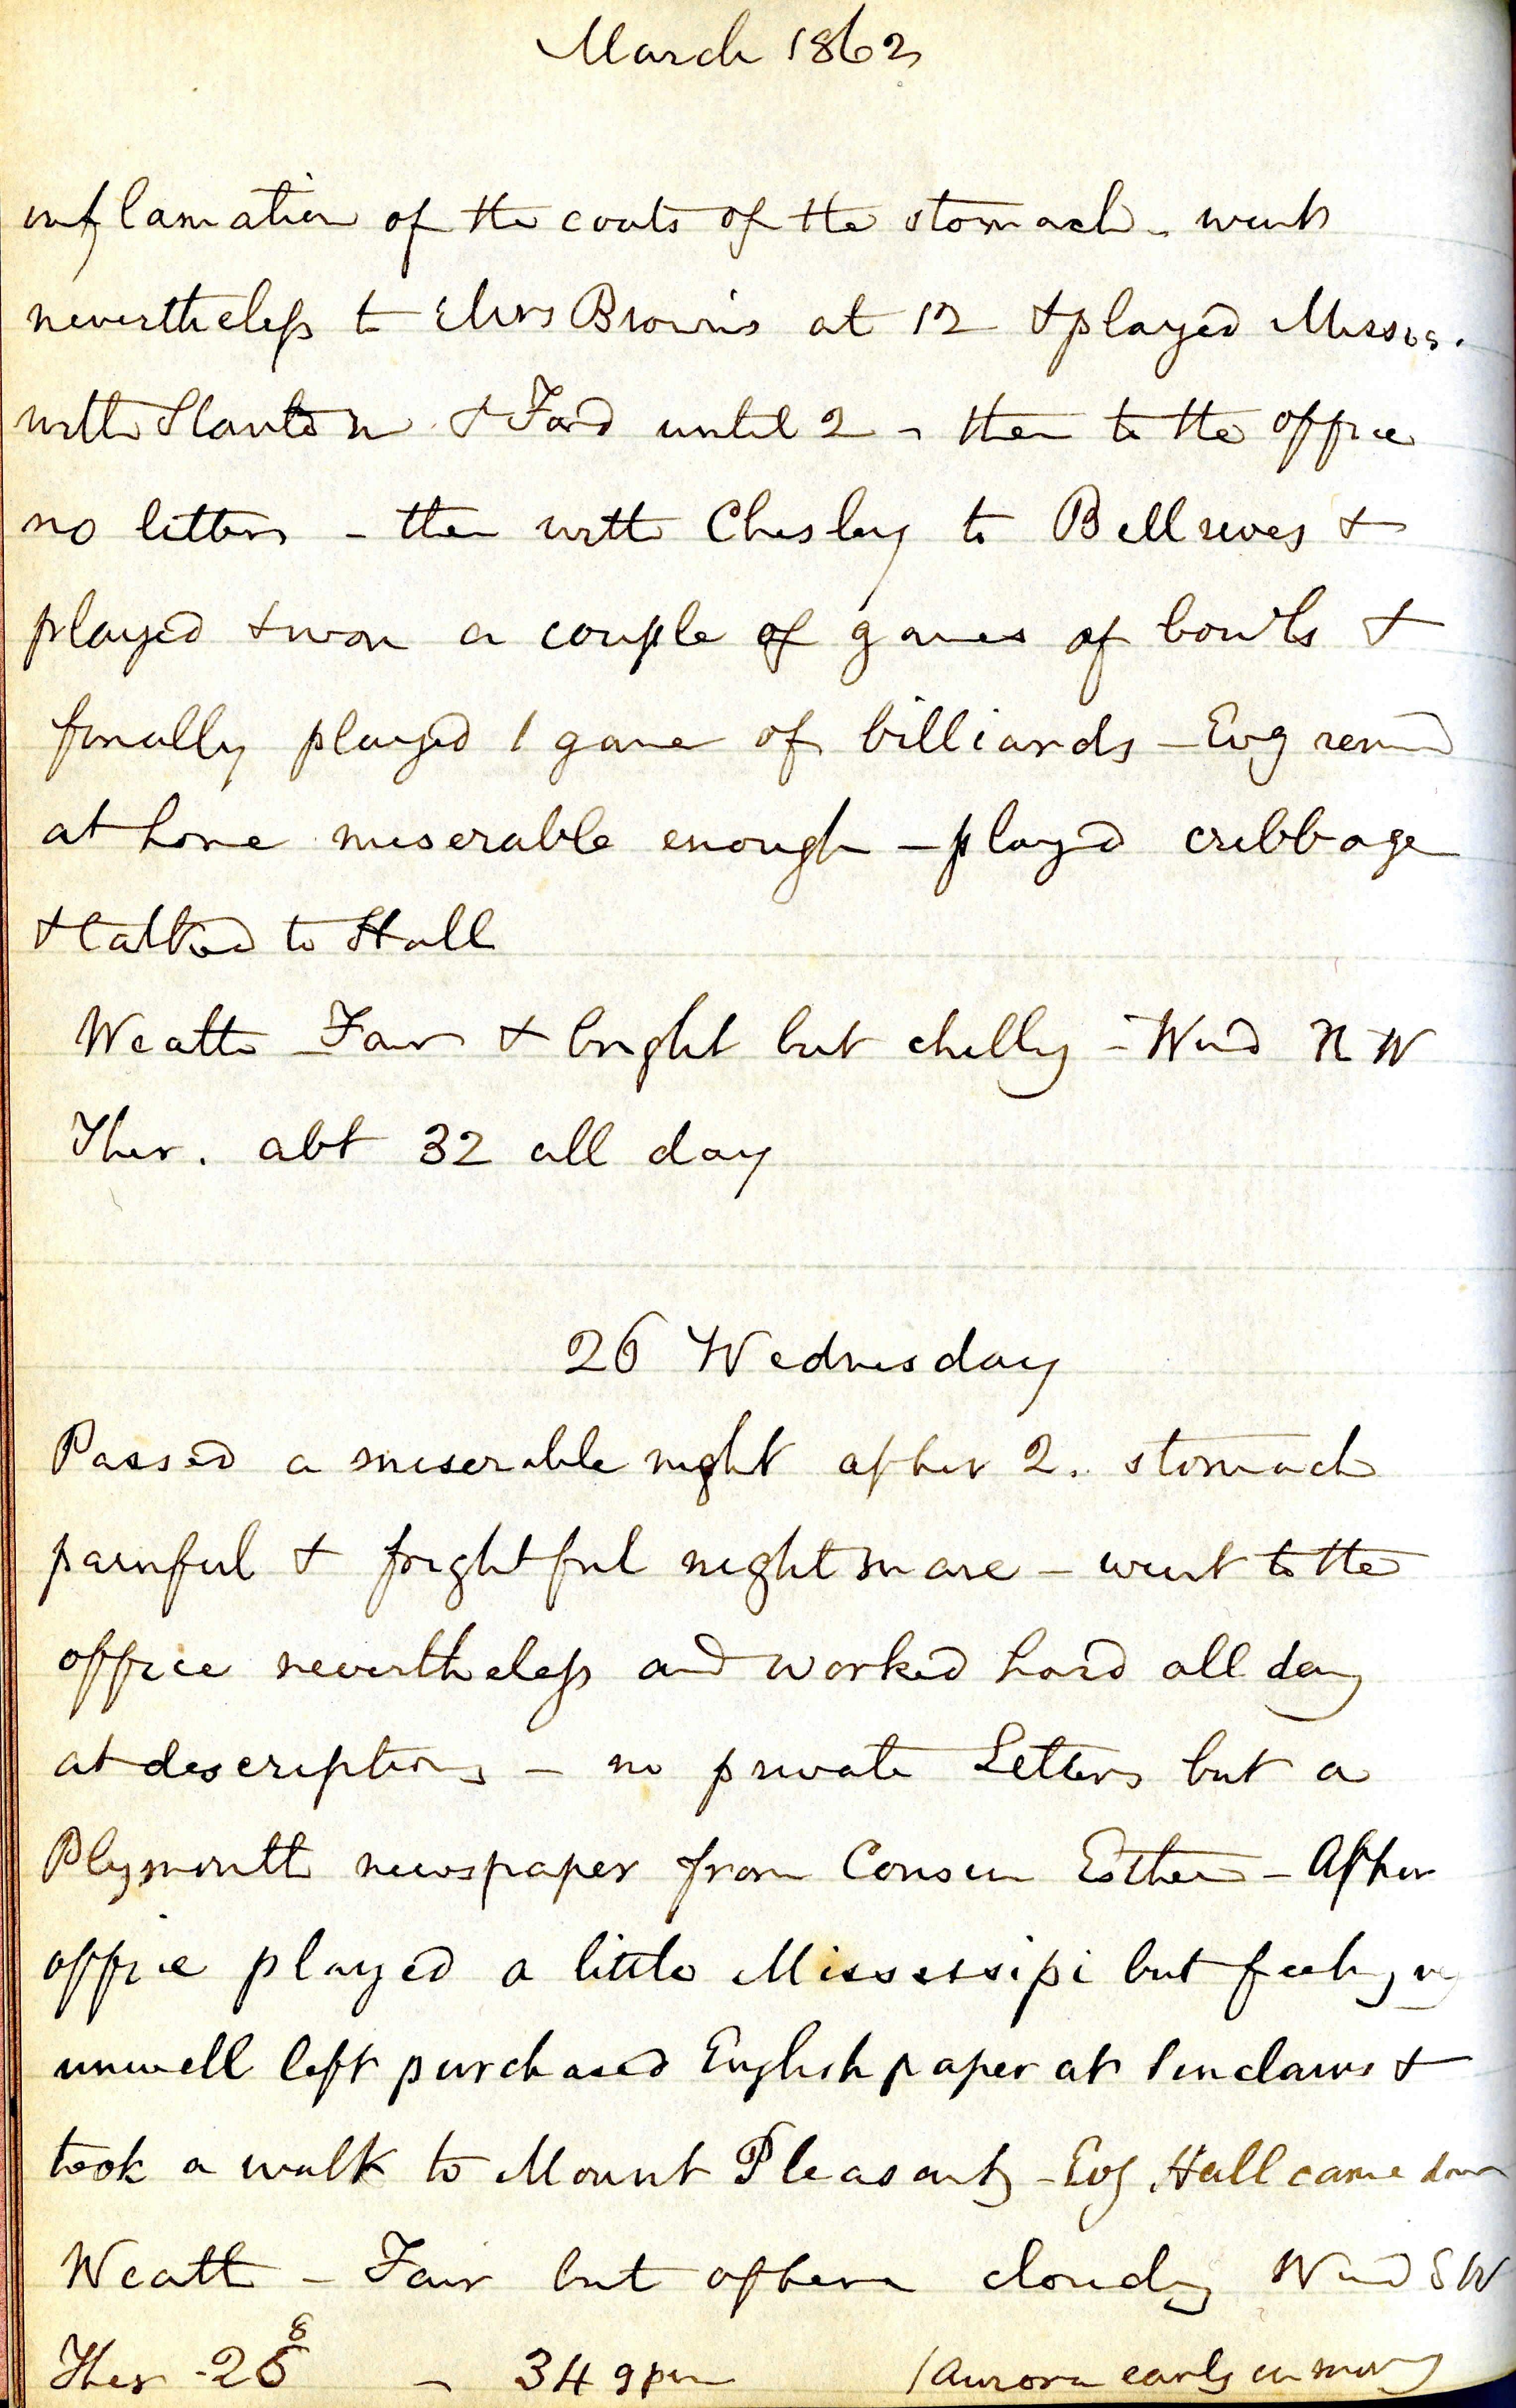 March 1862
inflamation of the coats of the stomach - went
nevertheless to Mrs Browns at 12 & played Missis.
with Stanton & Ford until 2 - then to the office
no letters - then with Chesley to Bellrives &
played & won a couple of games of bowls &
finally played 1 game of billiards - Evg remd
at home miserable enough - played cribbage
& talked to Hall
Weath Fair & bright but chilly - Wind NW
Ther. abt 32 all day
26 Wednesday
Passed a miserable night after 2. stomach
painful & frightful nightmare - went to the
office nevertheless and worked hard all day
at descriptions - no private Letters but a
Plymouth newspaper from Cousin Esther - After
office played a little Mississipi but feeling vy
unwell left purchased English paper at Sinclairs &
took a walk to Mount Pleasant - Evg Hall came down
Weath - Fair but aftern cloudy Wind SW
Ther - 25 8 - 34 9pm (Aurora early in morng